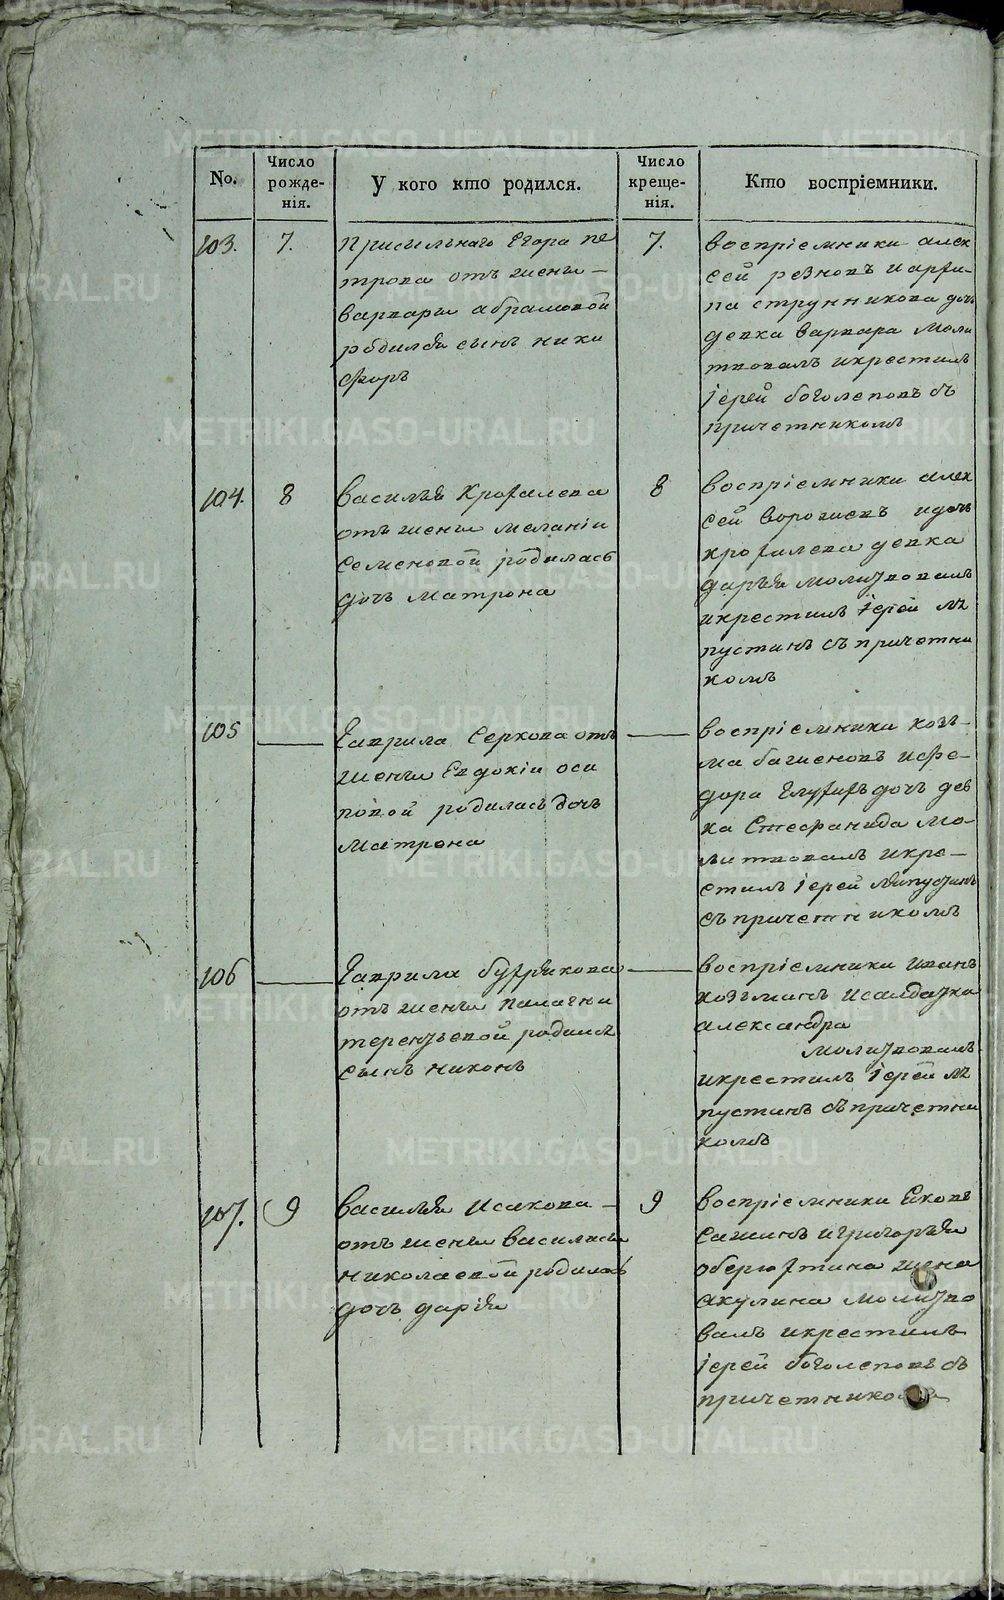 No.
Число рожде-нія.
У кого кто родился.
Число креще-нія.
Кто воспріемники.
103.
7.
присыльнаго Егора пе
трова отъ жены –
варвары абрамовой
родился сынъ ники
форъ
7.
воспріемники алек
сей резновъ
струнникова дочь
девка варвара моли
твовалъ икрестилъ
іерей боголеповъ съ
причетникомъ
104.
8
василья
отъ жены меланіи
семеновой родилась
дочь матрона
8
воспріемники алек
сей идочь
девка
дарья молитвовалъ
икрестилъ іерей ла
пустинъ съ причетни
комъ
105
гаврила серкова отъ
жены евдокіи оси
повой родилась дочь
матрона
воспріемники козь-
ма баженовъ ифе-
дора дочь дев
ка стефанида мо-
литвовалъ икре-
стилъ іерей лапустинъ
съ причетникомъ
106
гаврила
отъ жены пелагеи
терентьевой родился
сынъ никонъ
воспріемники иванъ
козьминъ исалдатка
александра
молитвовалъ
икрестилъ іерей ла
пустинъ съ причетни
комъ
107.
9
василья исакова –
отъ жены василисы
николаевой родилась
дочь дарія
9
воспріемники
игригорья
оберюхтина жена
акулина молитво
валъ икрестилъ
іерей боголеповъ съ
причетникомъ
METRIKI.GASO-URAL.RU